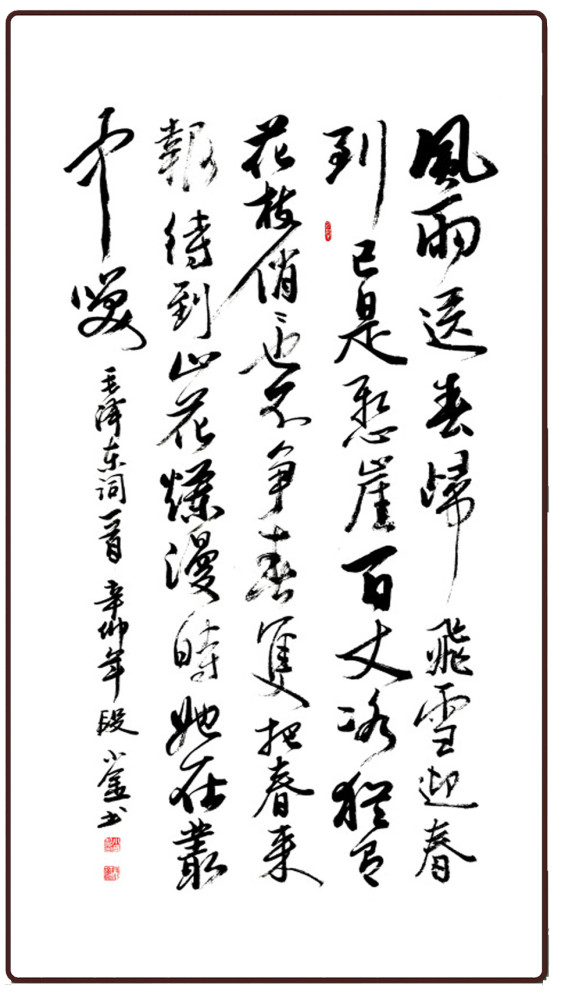 風雨送春歸飛雪迎春
到已是懸崖百丈冰猶有
花枝俏々也不争春隻把春来
報待到山花爛漫時她在叢
中笑 毛泽东词一首 辛卯年 段小金书